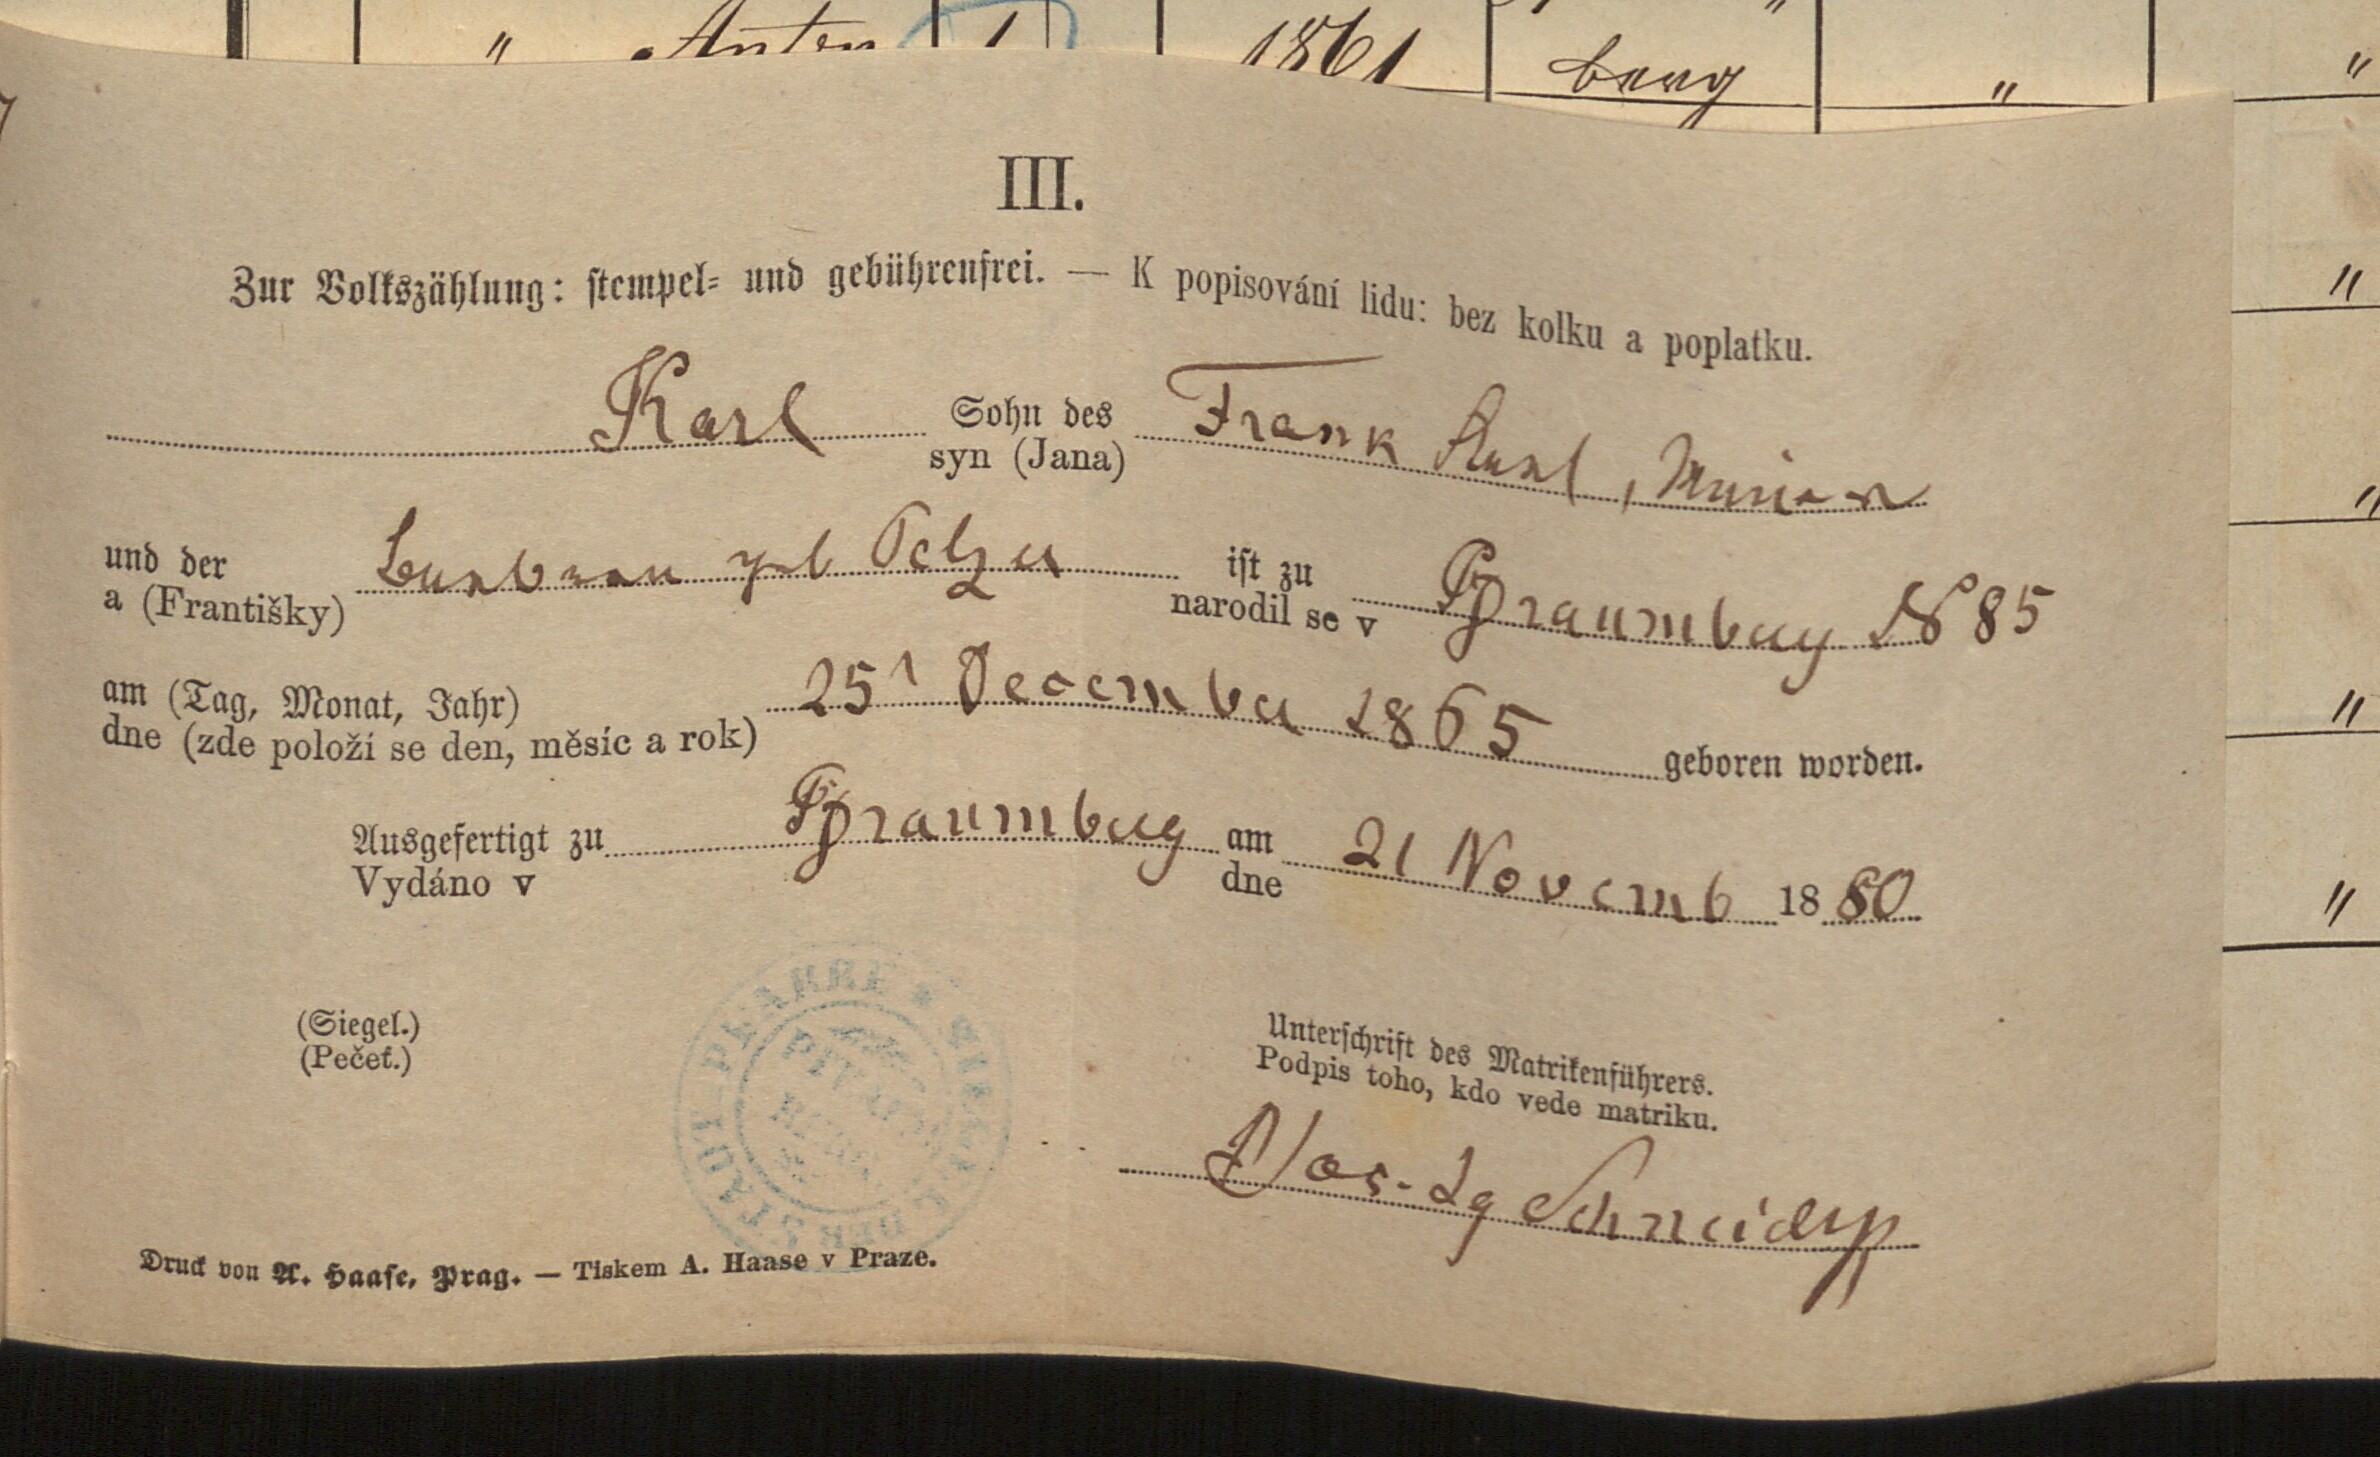 " Anton 1 1861 berg " "
III.
Zur Volkszählung: stempel- und gebührenfrei. — K popisování lidu: bez kolku a poplatku.
Karl Sohn des Frank Karl,
syn (Jana)
und der Barbara geb Pelzer ist zu Praumberg N 85
a (Františky) narodil se v
am (Tag, Monat, Jahr) 25t December 1865 geboren worden.
dne (zde položí se den, měsíc a rok)
Ausgefertigt zu Praumberg am 21 Novemb 1880
Vydáno v dne
(Siegel.)
(Pečeť.)
Unterschrift des Matrikenführers.
Podpis toho, kdo vede matriku.
Schneider
Druck von A. Haase, Prag. — Tiskem A. Haase v Praze.